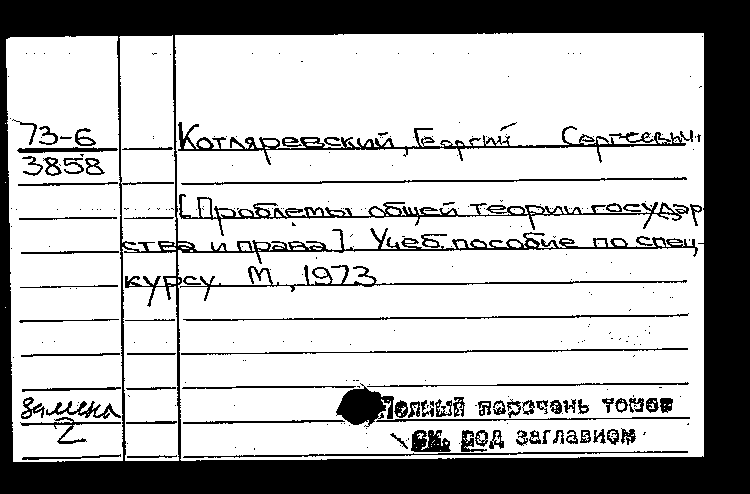 73-6
3858
Котляревский, Георгий Сергеевич.
[Проблемы общей теории государ-
ства и права]. Учеб. пособие по спец-
курсу. М., 1973
Замена
2
Полный перечень томов
см. под заглавием